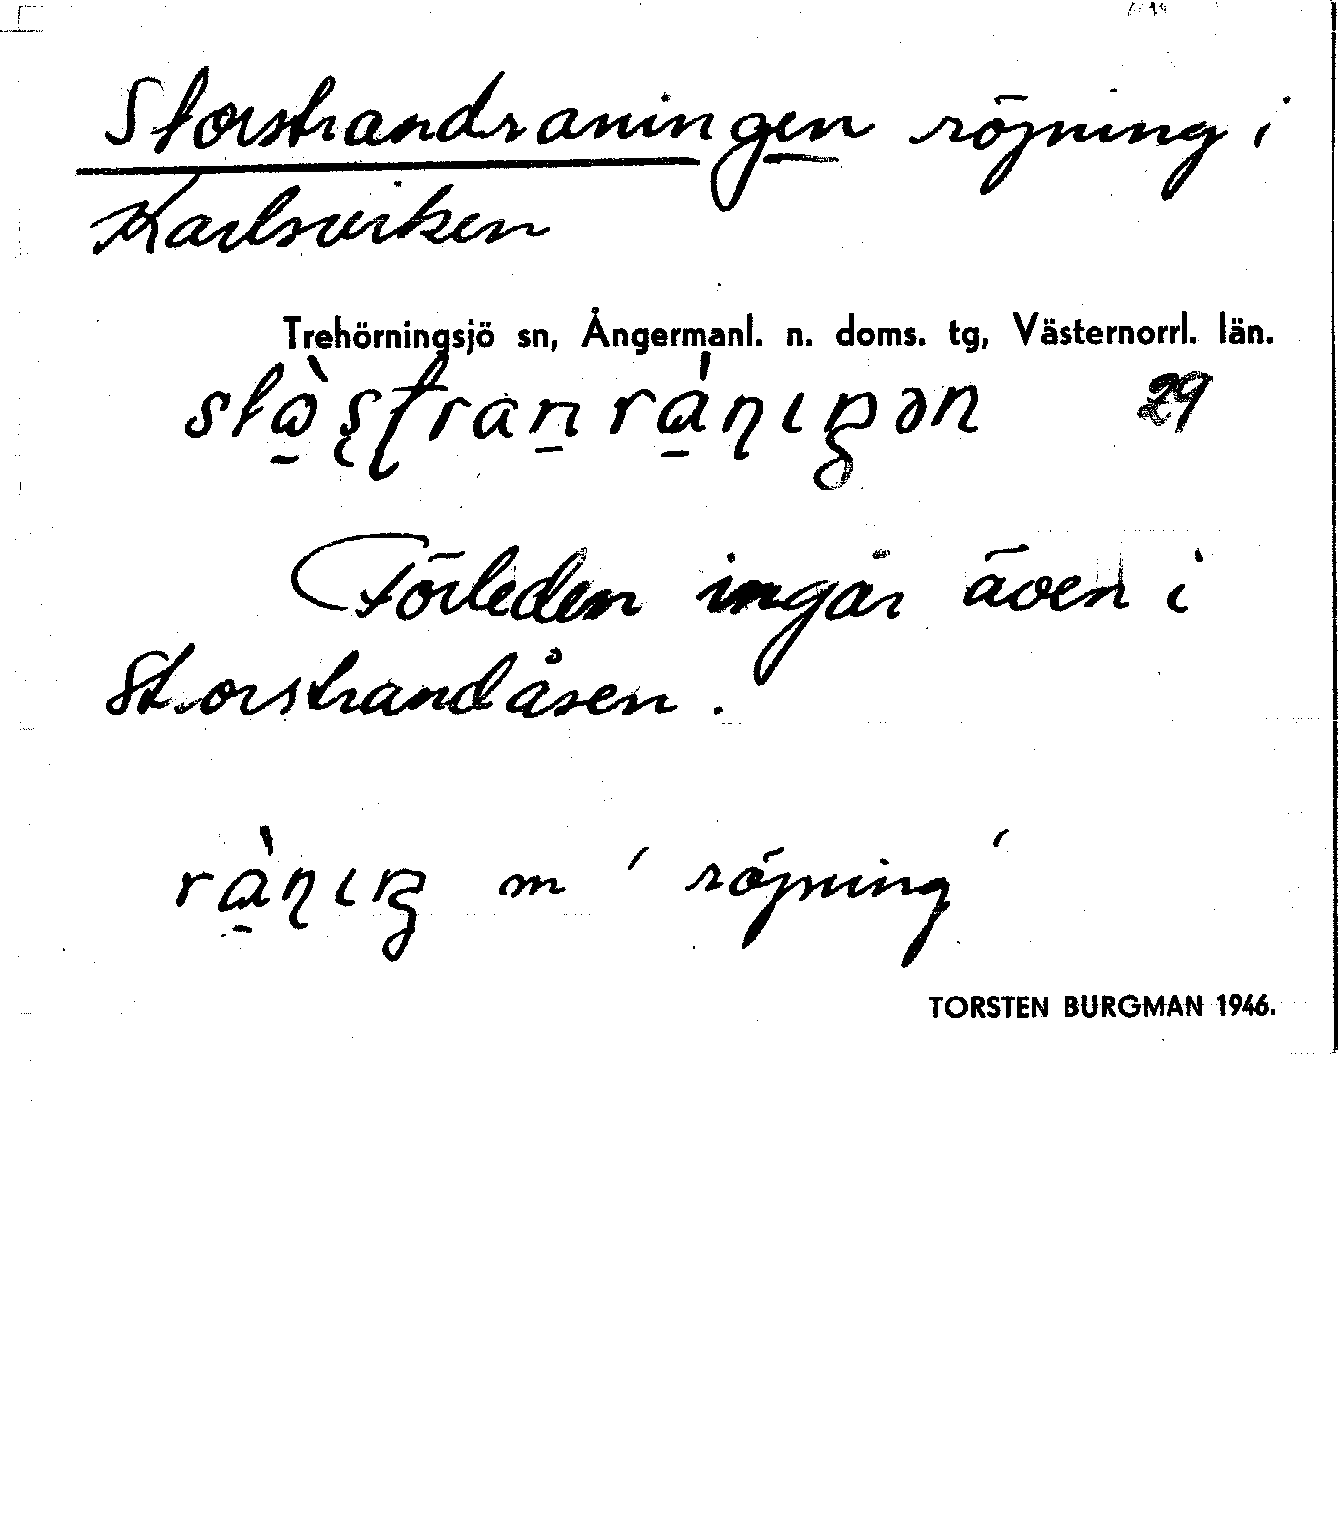 Storstrandraningen röjning i
Karlsviken
Trehörningsjö sn, Ångermanl. n. doms. tg, Västernorrl. län.
29
Förleden ingår även i
Storstrandåsen.
m 'röjning'
TORSTEN BURGMAN 1946.